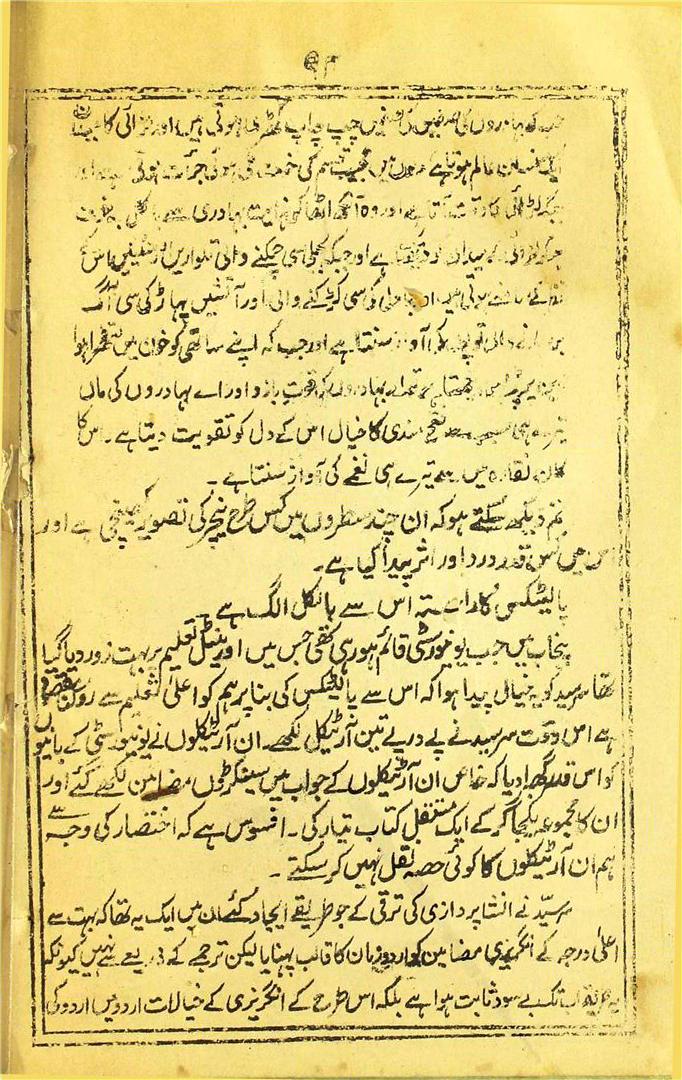 ۹۴
جب کہ بہادروں کی صفیں کی صفیں چپ چاپ کھڑی ہوتی ہیں اور لڑائی کا
عالم ہوتا ہے
لڑائی کا وقت آتا ہے اور وہ آنکھ اٹھا کر نہایت بہادری سے
لڑائی کے میدان کو دیکھتا ہے اور جبکہ بجلی سی چمکنے والی تلواریں اور سنگینیں اس کی
نظر کے سامنے ہوتی ہیں اور بادل کی سی کڑکنے والی اور آتشیں پہاڑ کی سی آگ
برسانے والی توپوں کی آواز سنتا ہے اور جب کہ اپنے ساتھی کو خون میں لتھڑا ہوا
زمین پر پڑا ہوا دیکھتا ہے تو اے بہادروں کی قوت بازو اور اے بہادروں کی ماں
تیرے ہی سبب سے فتح مندی کا خیال اس کے دل کو تقویت دیتا ہے۔ اس کا
کان نقارہ میں سے تیرے ہی نغمے کی آواز سنتا ہے۔
تم دیکھ سکتے ہو کہ ان چند سطروں میں کس طرح نیچر کی تصویر کھینچی ہے اور
اس میں کس قدر درد اور اثر پیدا کیا ہے۔
پالیٹکس کا راستہ اس سے بالکل الگ ہے۔
پنجاب میں جب یونیورسٹی قائم ہو رہی تھی جس میں اورینٹل تعلیم پر بہت زور دیا گیا
تھا سرسید کو یہ خیال پیدا ہوا کہ اس سے پالیٹکس کی بنا پر ہم کو اعلیٰ تعلیم سے روکنا مقصود
ہے اس وقت سرسید نے پے در پے تین آرٹیکل لکھے۔ ان آرٹیکلوں نے یونیورسٹی کے بانیوں
کو اس قدر گھبرا دیا کہ خاص ان آرٹیکلوں کے جواب میں سینکڑوں مضامین لکھے گئے اور
ان کا مجموعہ یکجا کر کے ایک مستقل کتاب تیار کی۔ افسوس ہے کہ اختصار کی وجہ سے
ہم ان آرٹیکلوں کا کوئی حصہ نقل نہیں کر سکتے۔
سرسیّد نے انشا پردازی کی ترقی کے جو طریقے ایجاد کئے ان میں ایک یہ تھا کہ بہت سے
اعلیٰ درجہ کے انگریزی مضامین کو اردو زبان کا قالب پہنایا لیکن ترجمے کے ذریعے سے نہیں کیونکہ
یہ طریقہ اب تک بے سود ثابت ہوا ہے بلکہ اس طرح کے انگریزی کے خیالات اردو میں اردو کی